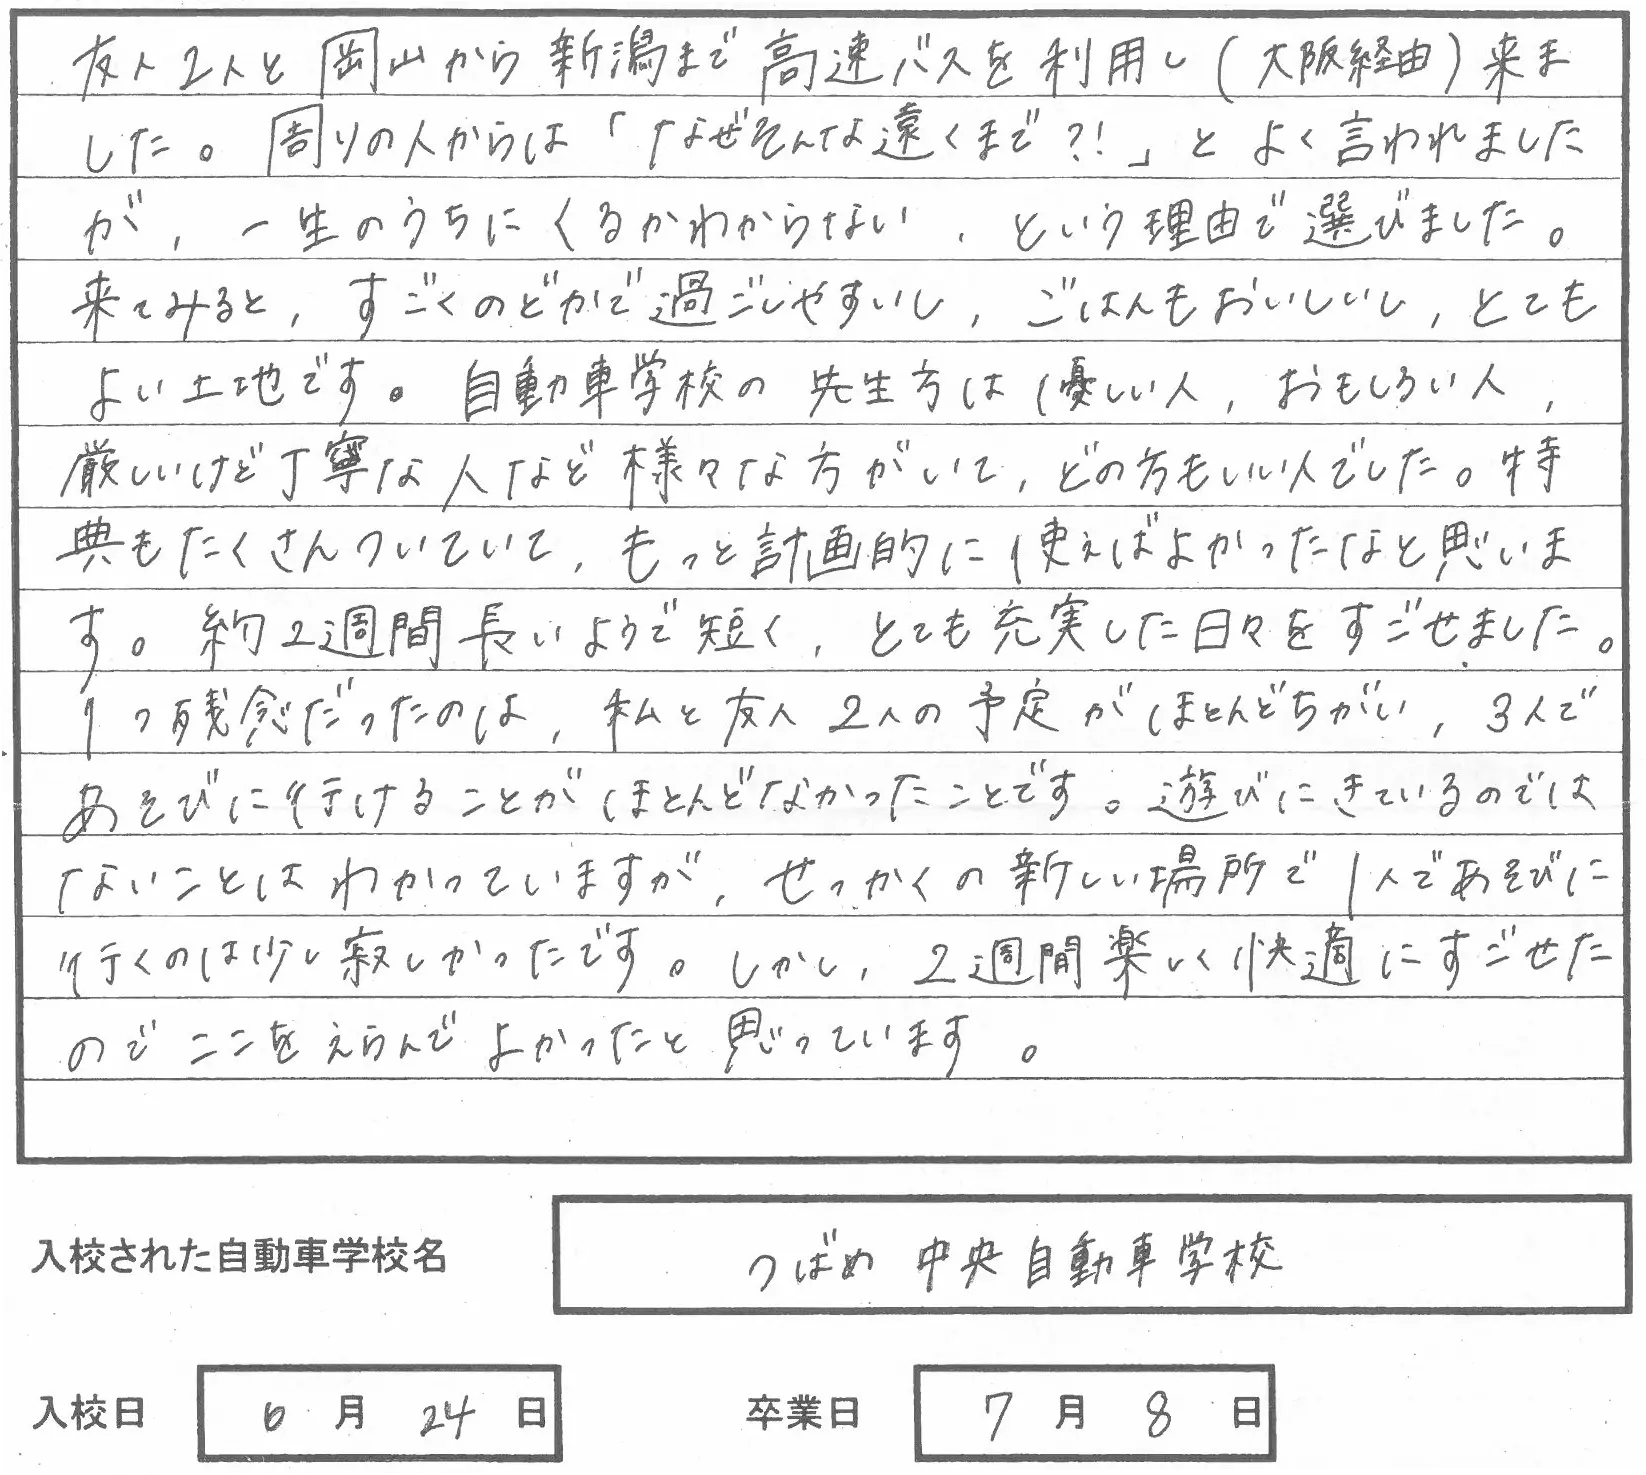 友人2人と岡山から新潟まで高速バスを利用し(大阪経由)来ま
した。周りの人からは「なぜそんな遠くまで?!」とよく言われました
が、一生のうちにくるかわからない、という理由で選びました。
来てみると、すごくのどかで過ごしやすいし、ごはんもおいしいし、とても
よい土地です。自動車学校の先生方は優しい人、おもしろい人、
厳しいけど丁寧な人など様々な方がいて、どの方もいい人でした。特
典もたくさんついていて、もっと計画的に使えばよかったなと思いま
す。約2週間長いようで短く、とても充実した日々をすごせました。
1つ残念だったのは、私と友人2人の予定がほとんどちがい、3人で
あそびに行けることがほとんどなかったことです。遊びにきているのでは
ないことはわかっていますが、せっかくの新しい場所で1人であそびに
行くのは少し寂しかったです。しかし、2週間楽しく快適にすごせた
のでここをえらんでよかったと思っています。
入校された自動車学校名 つばめ中央自動車学校
入校日 6月24日 卒業日 7月8日